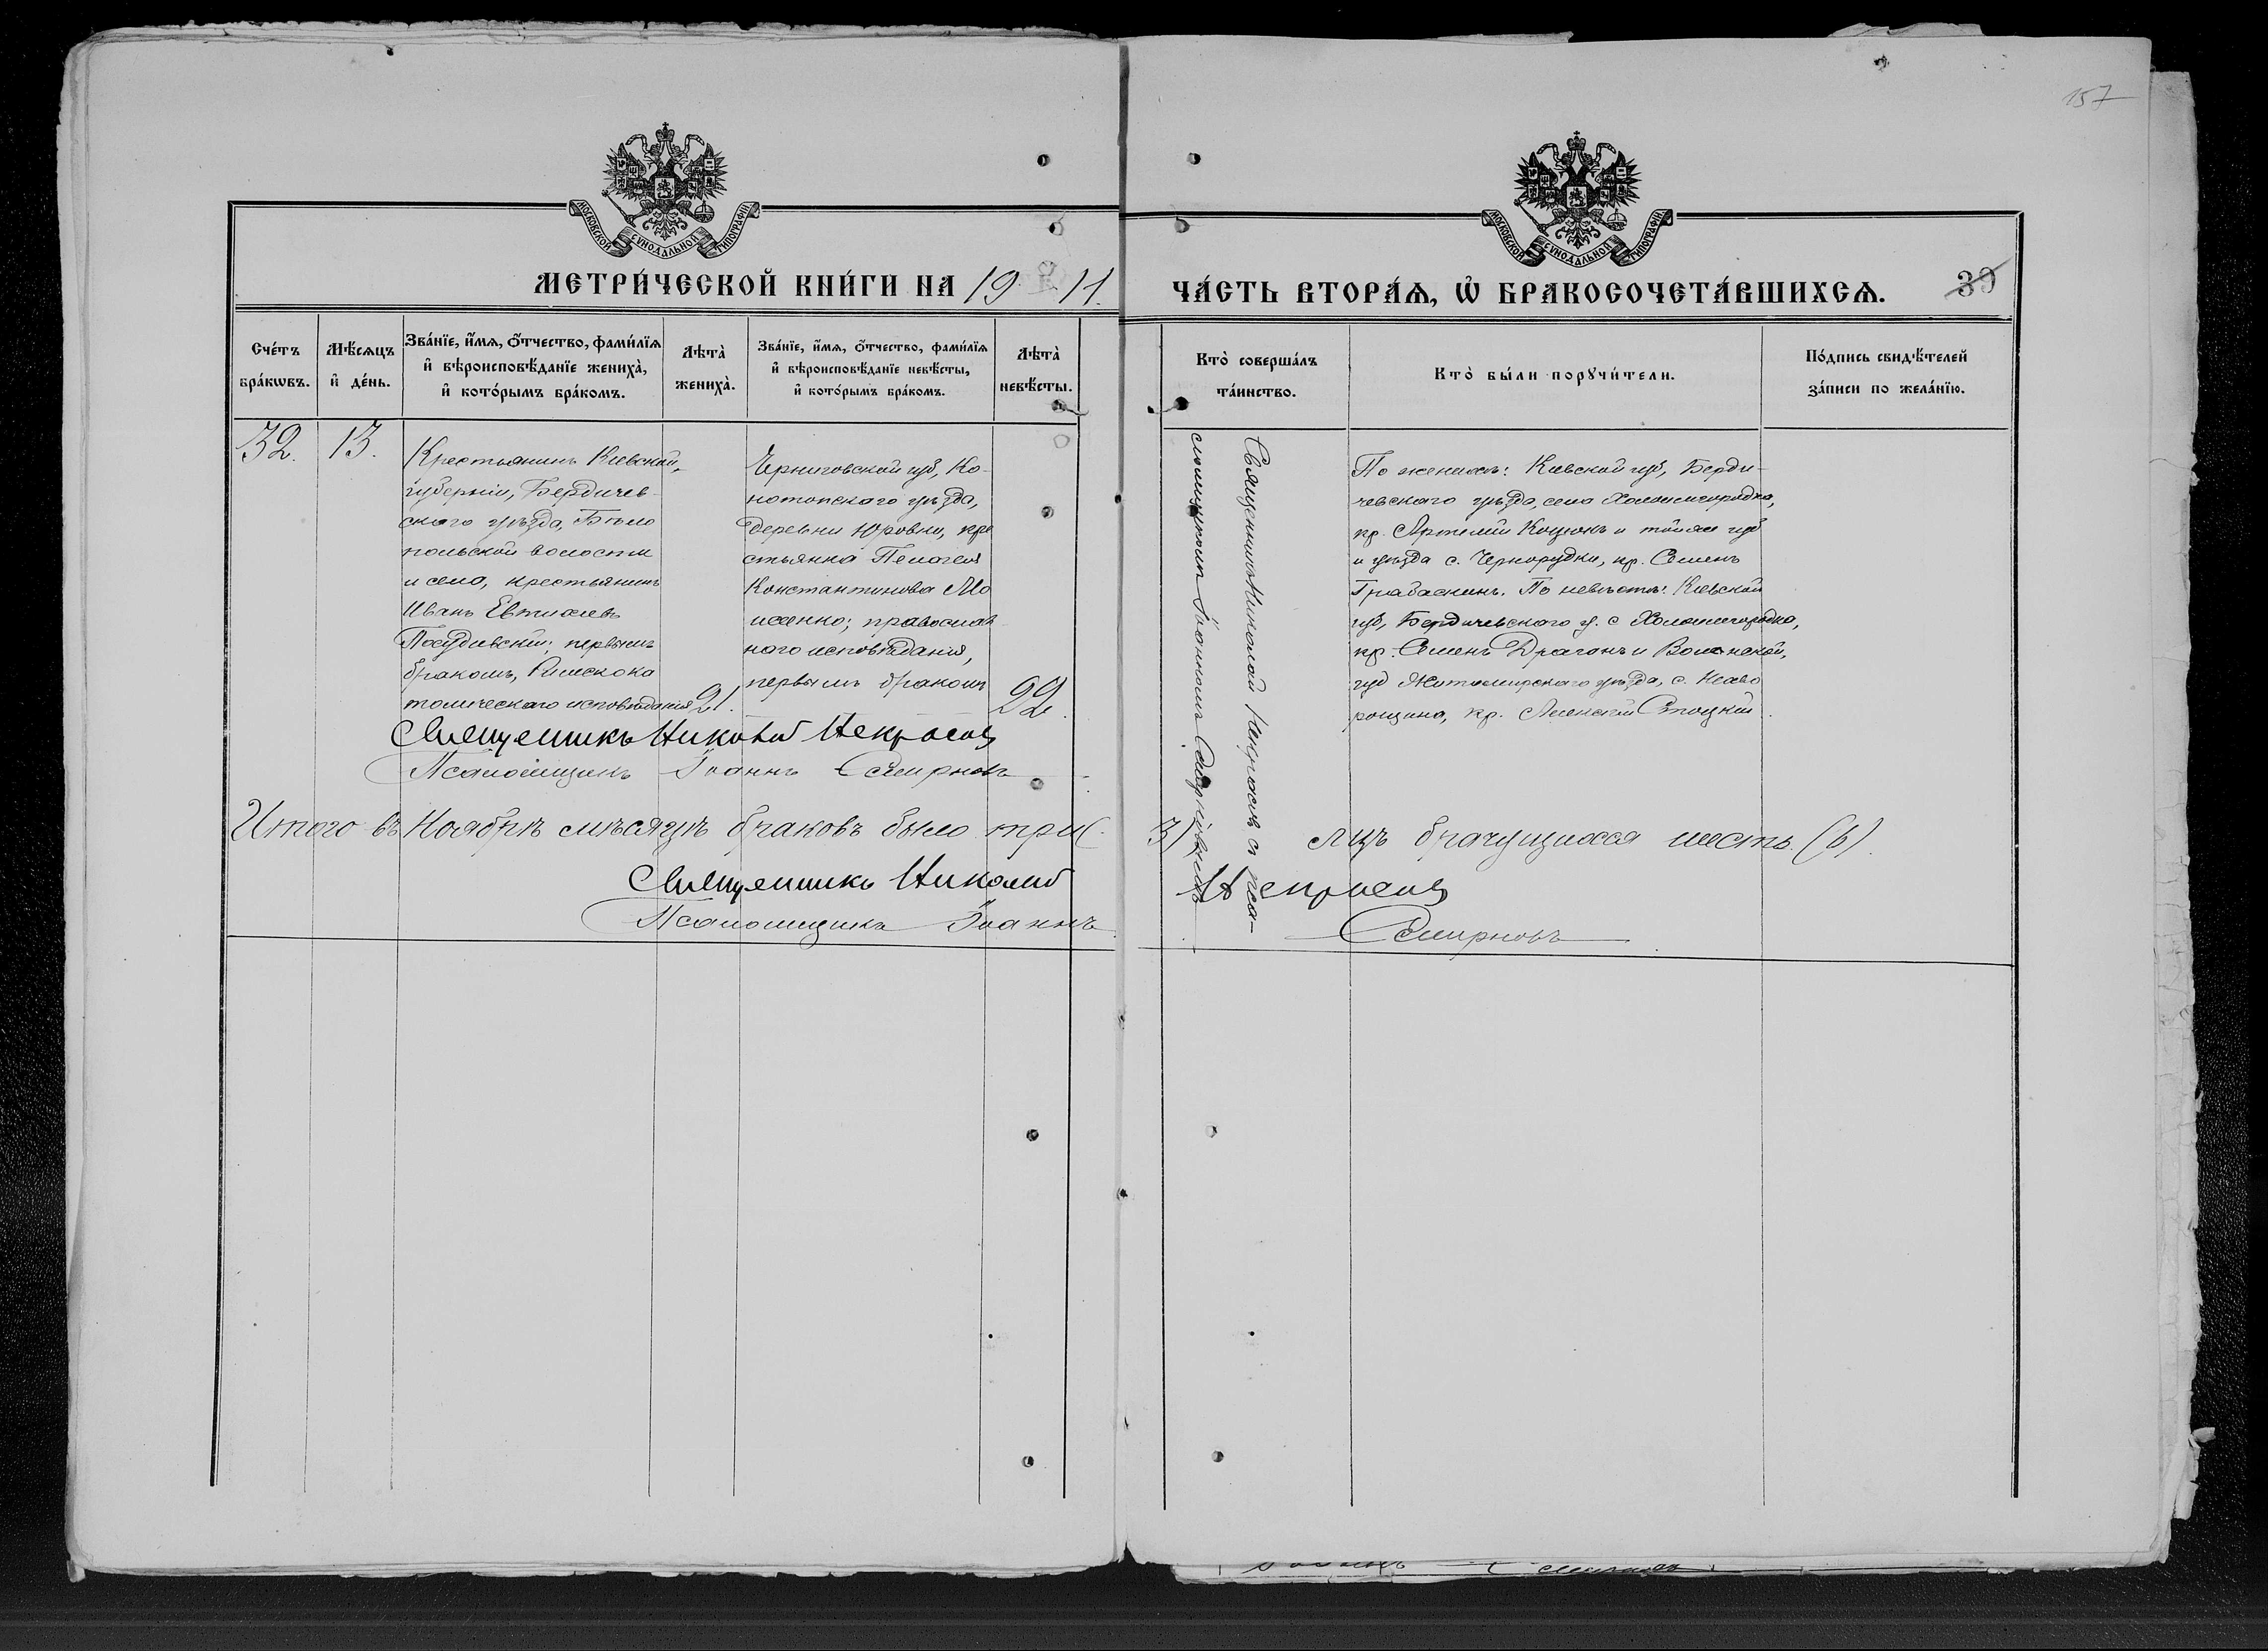 157
МОСКОВСКОЙ СѴНОДАЛЬНОЙ ТИПОГРАФІИ
МОСКОВСКОЙ СѴНОДАЛЬНОЙ ТИПОГРАФІИ
МЕТРИ́ЧЕСКОЙ КНИ́ГИ НА 1911.
ЧА́СТЬ ВТОРА́Ѧ, Ѡ БРАКОСОЧЕТА́ВШИХСѦ.
39
Сче́тъ бра́кѡвъ.
Мѣ́сяцъ и̂ де́нь.
Зва́нїе, и́мѧ, о́тчество, фами́лїѧ и̂ вѣроисповѣ́данїе жениха̀, и̂ кото́рымъ бра́комъ.
Лѣта̀ жениха̀.
Зва́нїе, и́мѧ, о́тчество, фами́лїѧ и̂ вѣроисповѣ́данїе невѣ́сты, и̂ кото́рымъ бра́комъ.
Лѣта̀ невѣ́сты.
Кто̀ соверша́лъ та́инство.
Кто̀ бы́ли порꙋчи́тели.
По́дпись свидѣ́телей за́писи по жела́нїю.
32.
13.
Крестьянинъ Кіевской
губерніи, Бердичев-
скаго уѣзда, Бѣло
польской волости
и села, крестьянинъ
Иванъ Евтихіевъ
первымъ
бракомъ, Римскока
толическаго исповѣданія
21.
Черниговской губ, Ко-
нотопскаго уѣзда,
деревни Юровки, кре
стьянка Пелагея
Константинова Мо
исенко; православ
наго исповѣданія,
первымъ бракомъ
22.
Священникъ Николай Некрасовъ съ пса-
ломщикомъ Іоанномъ Смирновымъ
По женихѣ: Кіевской губ, Берди-
чевскаго уѣзда, села
кр. Артемій Коцюкъ и той же губ
и уѣзда с. Чернорудки, кр. Семенъ
По невѣстѣ: Кіевской
губ, Бердичевскаго у. с
кр. Семенъ Драганъ и Волынской,
губ Житомирскаго уѣзда, с.
кр. Стоцкій.
Священникъ Николай Некрасовъ
Псаломщикъ Іоаннъ Смирновъ
Итого въ Ноябрѣ мѣсяцѣ браковъ было три (3) лицъ брачущихся шесть (6).
Священникъ Николай Некрасовъ
Псаломщикъ Іоаннъ Смирновъ